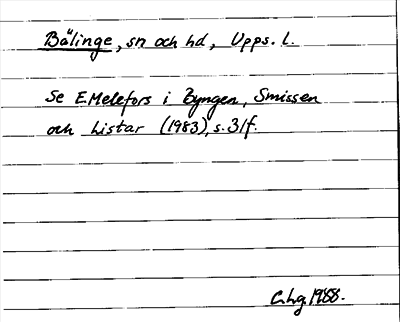 Bälinge, sn och hd, Upps. l.
Se E. Melefors i Byngen, Smissen
och Listar (1983), s. 31f.
C.Lg. 1988.